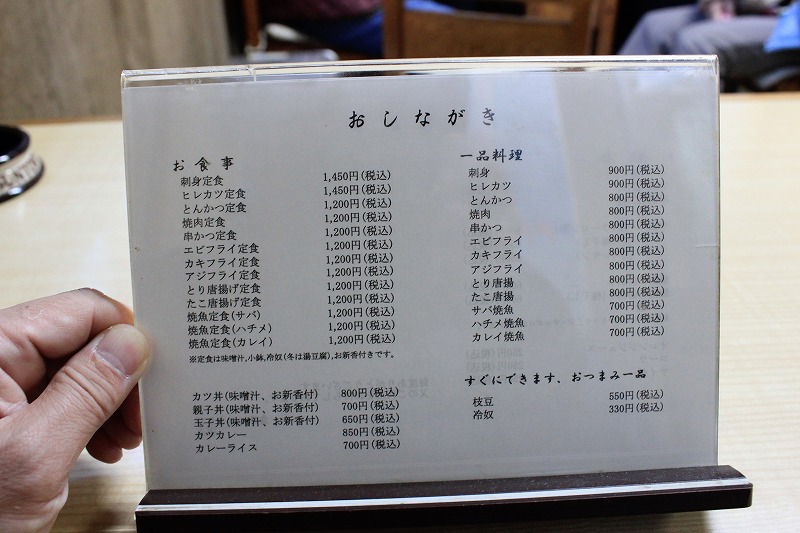 おしながき
お食事
刺身定食 1,450円(税込)
ヒレカツ定食 1,450円(税込)
とんかつ定食 1,200円(税込)
焼肉定食 1,200円(税込)
串かつ定食 1,200円(税込)
エビフライ定食 1,200円(税込)
カキフライ定食 1,200円(税込)
アジフライ定食 1,200円(税込)
とり唐揚げ定食 1,200円(税込)
たこ唐揚げ定食 1,200円(税込)
焼魚定食(サバ) 1,200円(税込)
焼魚定食(ハチメ) 1,200円(税込)
焼魚定食(カレイ) 1,200円(税込)
※定食は味噌汁,小鉢,冷奴(冬は湯豆腐),お新香付きです。
カツ丼(味噌汁、お新香付) 800円(税込)
親子丼(味噌汁、お新香付) 700円(税込)
玉子丼(味噌汁、お新香付) 650円(税込)
カツカレー 850円(税込)
カレーライス 700円(税込)
一品料理
刺身 900円(税込)
ヒレカツ 900円(税込)
とんかつ 800円(税込)
焼肉 800円(税込)
串かつ 800円(税込)
エビフライ 800円(税込)
カキフライ 800円(税込)
アジフライ 800円(税込)
とり唐揚 800円(税込)
たこ唐揚 800円(税込)
サバ焼魚 700円(税込)
ハチメ焼魚 700円(税込)
カレイ焼魚 700円(税込)
すぐにできます、おつまみ一品
枝豆 550円(税込)
冷奴 330円(税込)